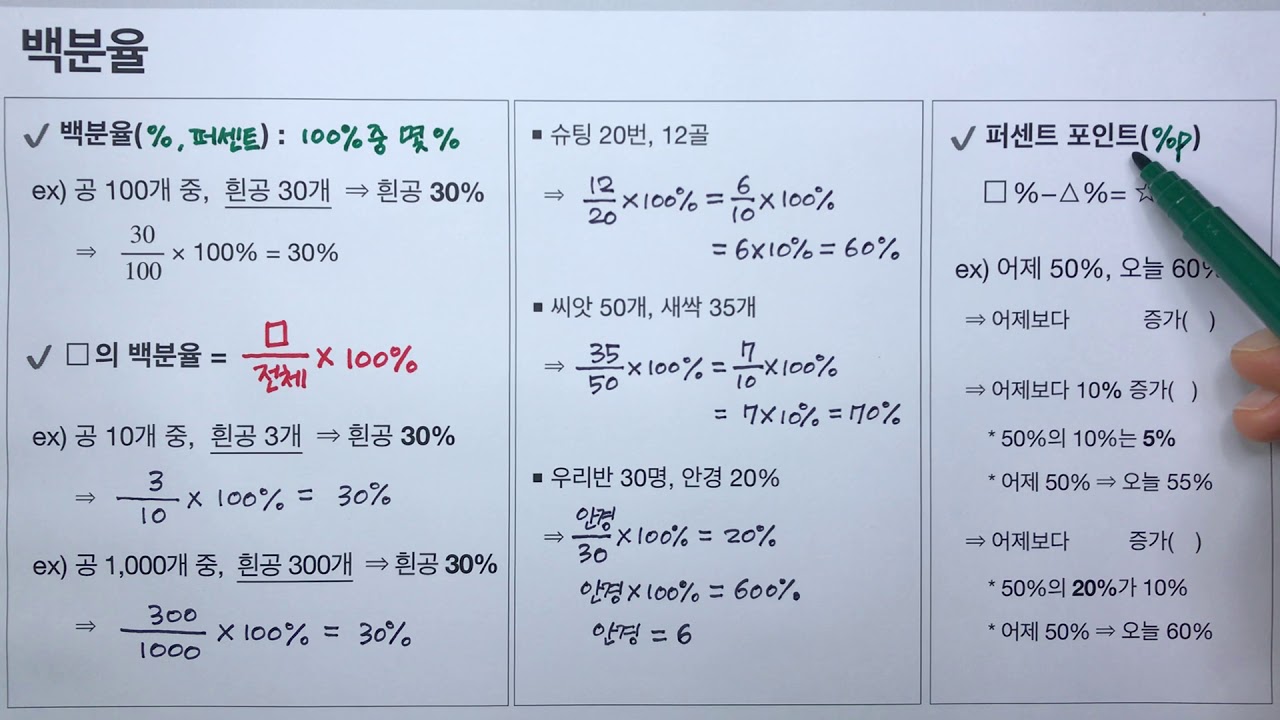 백분율
✓ 백분율(%, 퍼센트) : 100% 중 몇 %
ex) 공 100개 중, 흰공 30개 ⇒ 흰공 30%
⇒ 30/100 × 100% = 30%
✓ □의 백분율 = □/전체 × 100%
ex) 공 10개 중, 흰공 3개 ⇒ 흰공 30%
⇒ 3/10 × 100% = 30%
ex) 공 1,000개 중, 흰공 300개 ⇒ 흰공 30%
⇒ 300/1000 × 100% = 30%
▪ 슈팅 20번, 12골
⇒ 12/20 × 100% = 6/10 × 100%
= 6 × 10% = 60%
▪ 씨앗 50개, 새싹 35개
⇒ 35/50 × 100% = 7/10 × 100%
= 7 × 10% = 70%
▪ 우리반 30명, 안경 20%
⇒ 안경/30 × 100% = 20%
안경 × 100% = 600%
안경 = 6
✓ 퍼센트 포인트(%p)
□ % − △ % = ☆
ex) 어제 50%, 오늘 60%
⇒ 어제보다 증가( )
⇒ 어제보다 10% 증가( )
* 50%의 10%는 5%
* 어제 50% ⇒ 오늘 55%
⇒ 어제보다 증가( )
* 50%의 20%가 10%
* 어제 50% ⇒ 오늘 60%